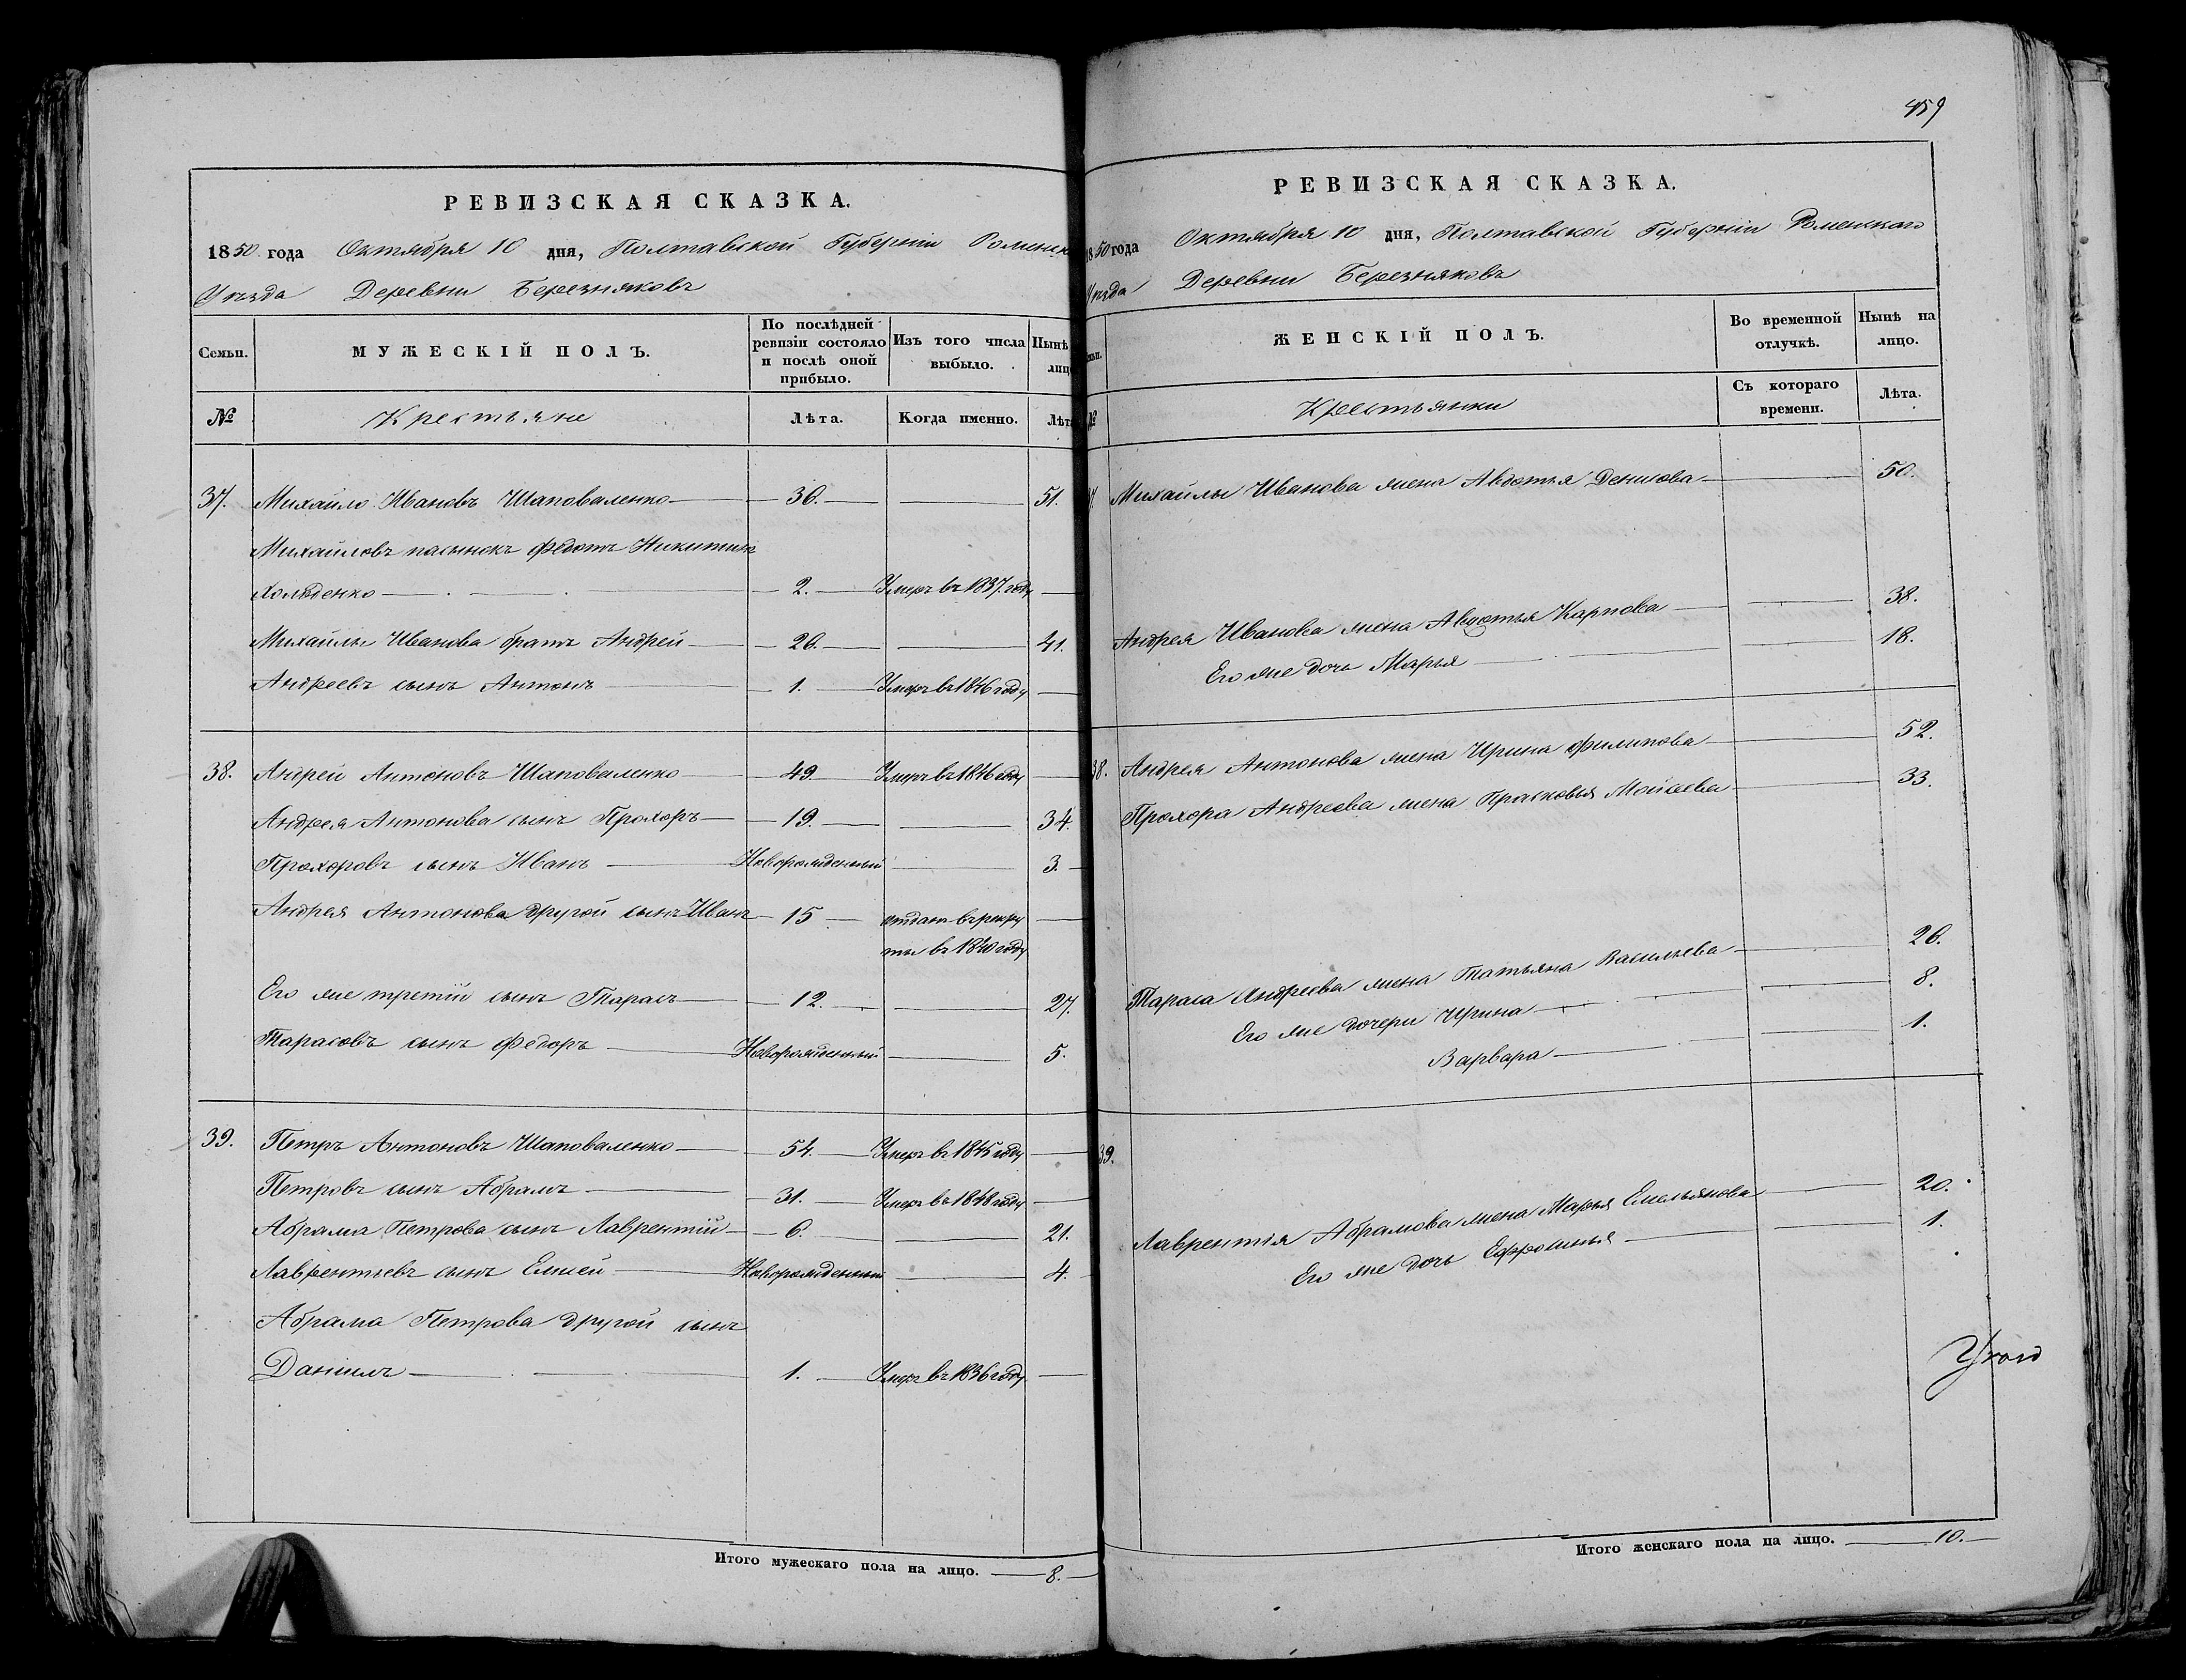 РЕВИЗСКАЯ СКАЗКА.
1850 года Октября 10 дня, Полтавской Губерніи Роменск
Уѣзда Деревни Березняковъ
Семьи.
МУЖЕСКІЙ ПОЛЪ.
По послѣдней ревизіи состояло и послѣ оной прибыло.
Изъ того числа выбыло.
Нынѣ лиц
№
Крестьяне
Лѣта.
Когда именно.
Лѣт
37. Михайло Ивановъ Шаповаленко 36. 51.
Михайловъ пасынокъ Федотъ Никитинъ
2. Умеръ въ 1837. году
Михайлы Иванова братъ Андрей 26. 41.
Андреевъ сынъ Антонъ 1. Умеръ въ 1846 году
38. Андрей Антоновъ Шаповаленко 49. Умеръ въ 1846 году
Андрея Антонова сынъ Прохоръ 19. 34.
Прохоровъ сынъ Иванъ Новорожденный 3.
Андрея Антонова другой сынъ Иванъ 15 отданъ въ рекру
ты въ 1840 году
Его же третій сынъ Тарасъ 12. 27.
Тарасовъ сынъ Федоръ Новорожденный 5.
39. Петръ Антоновъ Шаповаленко 54. Умеръ въ 1845 году
Петровъ сынъ Абрамъ 31. Умеръ въ 1848 году
Абрама Петрова сынъ Лаврентій 6. 21.
Лаврентьевъ сынъ Елисей Новорожденный 4.
Абрама Петрова другой сынъ
Даніилъ 1. Умеръ въ 1836 году
Итого мужескаго пола на лицо. 8.
459
РЕВИЗСКАЯ СКАЗКА.
1850 года Октября 10 дня, Полтавской Губерніи Роменскаго
Уѣзда Деревни Березняковъ
ЖЕНСКІЙ ПОЛЪ.
Во временной отлучкѣ.
Нынѣ на лицо.
№
Крестьянки
Съ котораго времени.
Лѣта.
Михайлы Иванова жена Авдотья Денисова 50.
Андрея Иванова жена Авдотья Карпова 38.
Его же дочь Марья 18.
38. Андрея Антонова жена Ирина Филипова 52.
Прохора Андреева жена Прасковья Моисеева 33.
Тараса Андреева жена Татьяна Васильева 26.
Его же дочери Ирина 8.
Варвара 1.
39.
Лаврентія Абрамова жена Марья Емельянова 20.
Его же дочь Ефросинья 1.
Итого женскаго пола на лицо. 10.